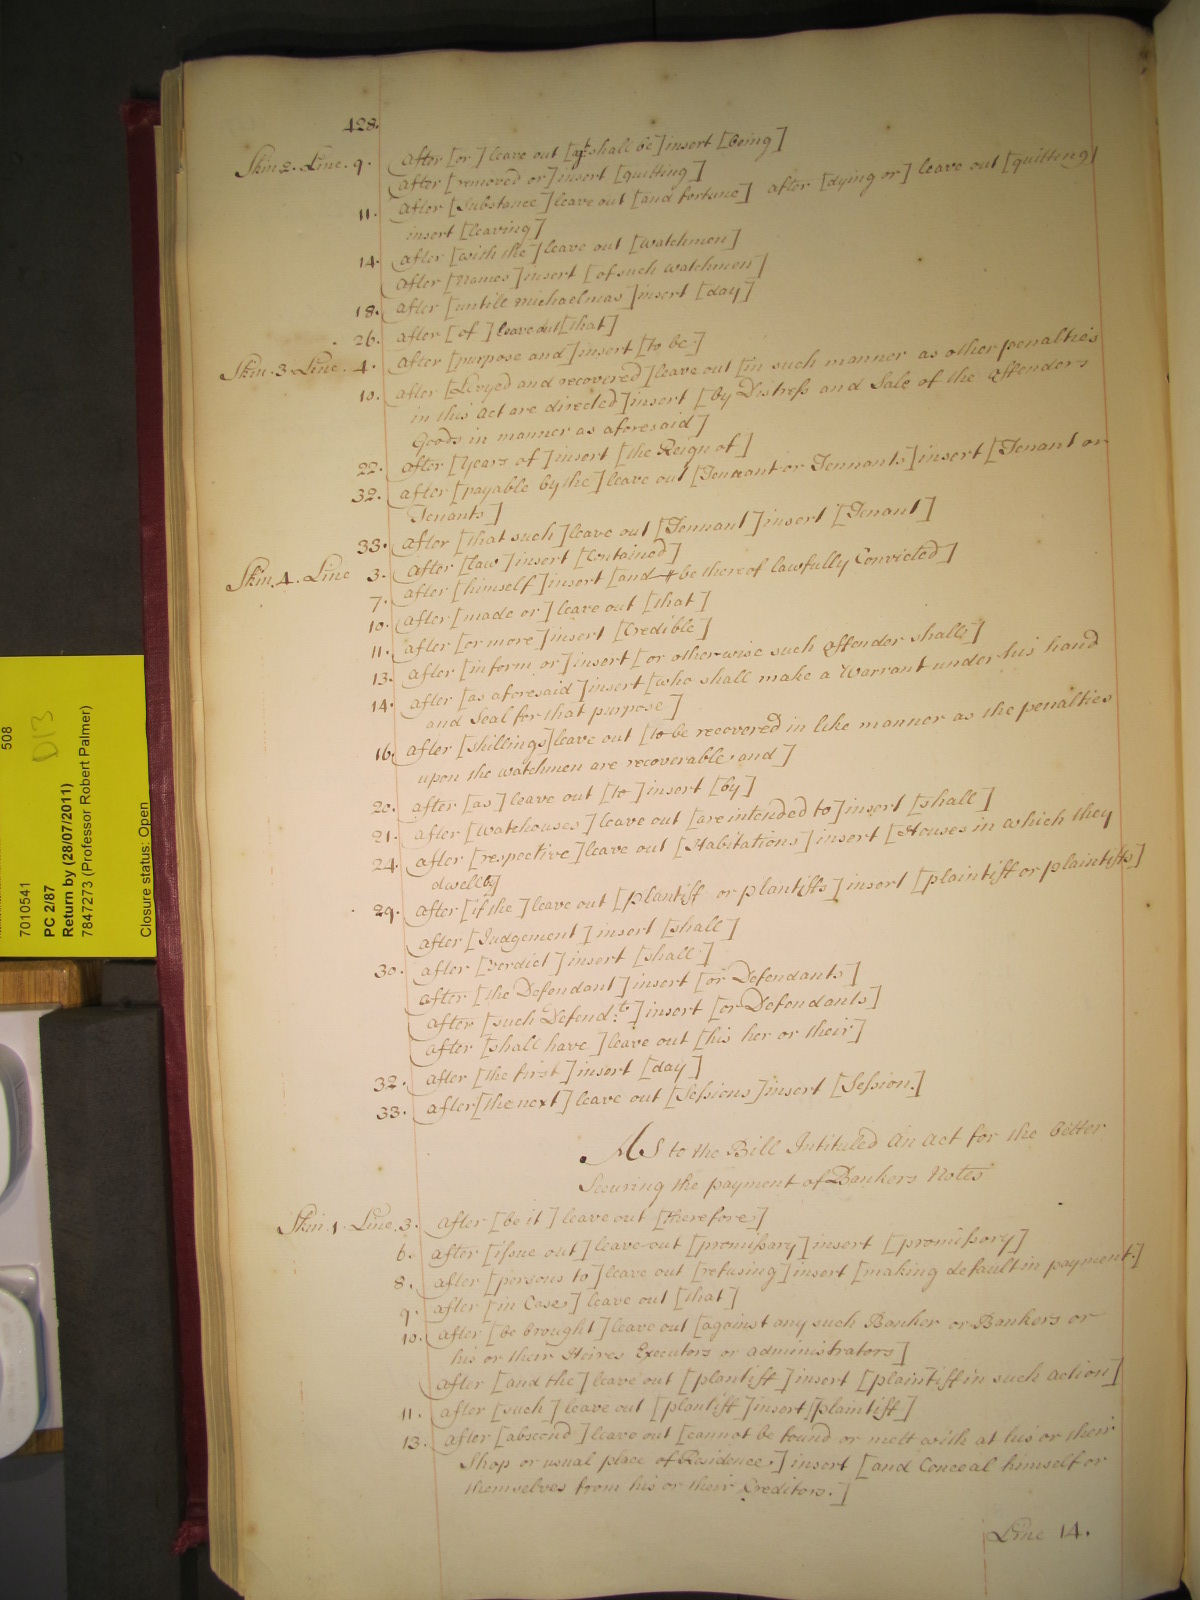 428.
Skin 2. Line. 9. After [or] leave out [shall be] insert [being]
After [removed or] insert [quitting]
11. After [Substance] leave out [and fortune] after [dying or] leave out [quitteng]
insert [leaving]
14. after [with the] leave out [watchmen]
After [Names] insert [of such watchmen]
18. after [untill michaelmas] insert [day]
26. after [of] leave out [that]
Skin. 3. Line. 4. After [purpose and] insert [to be]
10. after [Levyed and recovered] leave out [in such manner as other penalties
in this act are directed] insert [by Distress and Sale of the offenders
Goods in manner as aforesaid]
22. after [Years of] insert [the Reign of]
32. after [payable by the] leave out [Tennant or Tennants] insert [Tenant or
Tenants]
33. after [that such] leave out [Tennant] insert [Tenant]
Skin. 4. Line 3. After [law] insert [Contained]
7. after [himself] insert [and be thereof lawfully Convicted]
10. after [made or] leave out [that]
11. after [or more] insert [Credible]
13. after [inform or] insert [or otherwise such offender shall]
14. after [as aforesaid] insert [who shall make a Warrant under his hand
and Seal for that purpose]
16. after [shillings] leave out [to be recovered in like manner as the penalties
upon the watchmen are recoverable and]
20. after [as] leave out [to] insert [by]
21. after [Watchouses] leave out [are intended to] insert [shall]
24. after [respective] leave out [Habitations] insert [Houses in which they
dwell]
29. after [if the] leave out [plantiff or plantiffs] insert [plaintiff or plaintiffs]
after [Judgement] insert [shall]
30. after [verdict] insert [shall]
after [the Defendant] insert [or Defendants]
after [such Defend.ts] insert [or Defendants]
after [shall have] leave out [his her or their]
32. after [the first] insert [day]
33. after [the next] leave out [Sessions] insert [Session.]
As to the Bill Intituled an act for the better
Securing the payment of Bankers Notes
Skin. 1. Line. 3. after [be it] leave out [therefore]
6. after [issue out] leave out [promissary] insert [promissory]
8. after [persons to] leave out [refusing] insert [making default in payment.]
9. after [in Case] leave out [that]
10. after [be brought] leave out [against any such Banker or Bankers or
his or their Heires Executors or administrators]
after [and the] leave out [plantiff] insert [plaintiff in such action]
11. after [such] leave out [plantiff] insert [plaintiff]
13. after [abscond] leave out [cannot be found or mett with at his or their
Shop or usual place of Residence] insert [and Conceal himself or
themselves from his or their Creditors.]
Line 14.
508
D13
7010541
PC 2/87
Return by (28/07/2011)
7847273 (Professor Robert Palmer)
Closure status: Open